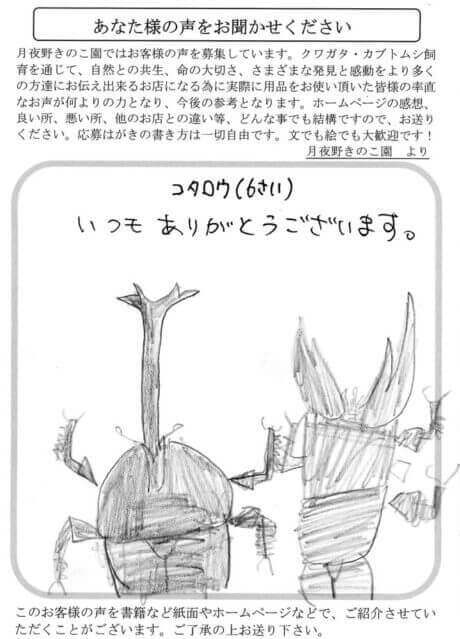 あなた様の声をお聞かせください
月夜野きのこ園ではお客様の声を募集しています。クワガタ・カブトムシ飼
育を通じて、自然との共生、命の大切さ、さまざまな発見と感動をより多く
の方達にお伝え出来るお店になる為に実際に用品をお使い頂いた皆様の率直
なお声が何よりの力となり、今後の参考となります。ホームページの感想、
良い所、悪い所、他のお店との違い等、どんな事でも結構ですので、お送り
ください。応募はがきの書き方は一切自由です。文でも絵でも大歓迎です！
月夜野きのこ園　より
コタロウ(6さい)
いつモ ありがとうございます。
このお客様の声を書籍など紙面やホームページなどで、ご紹介させてい
ただくことがございます。ご了承の上お送り下さい。